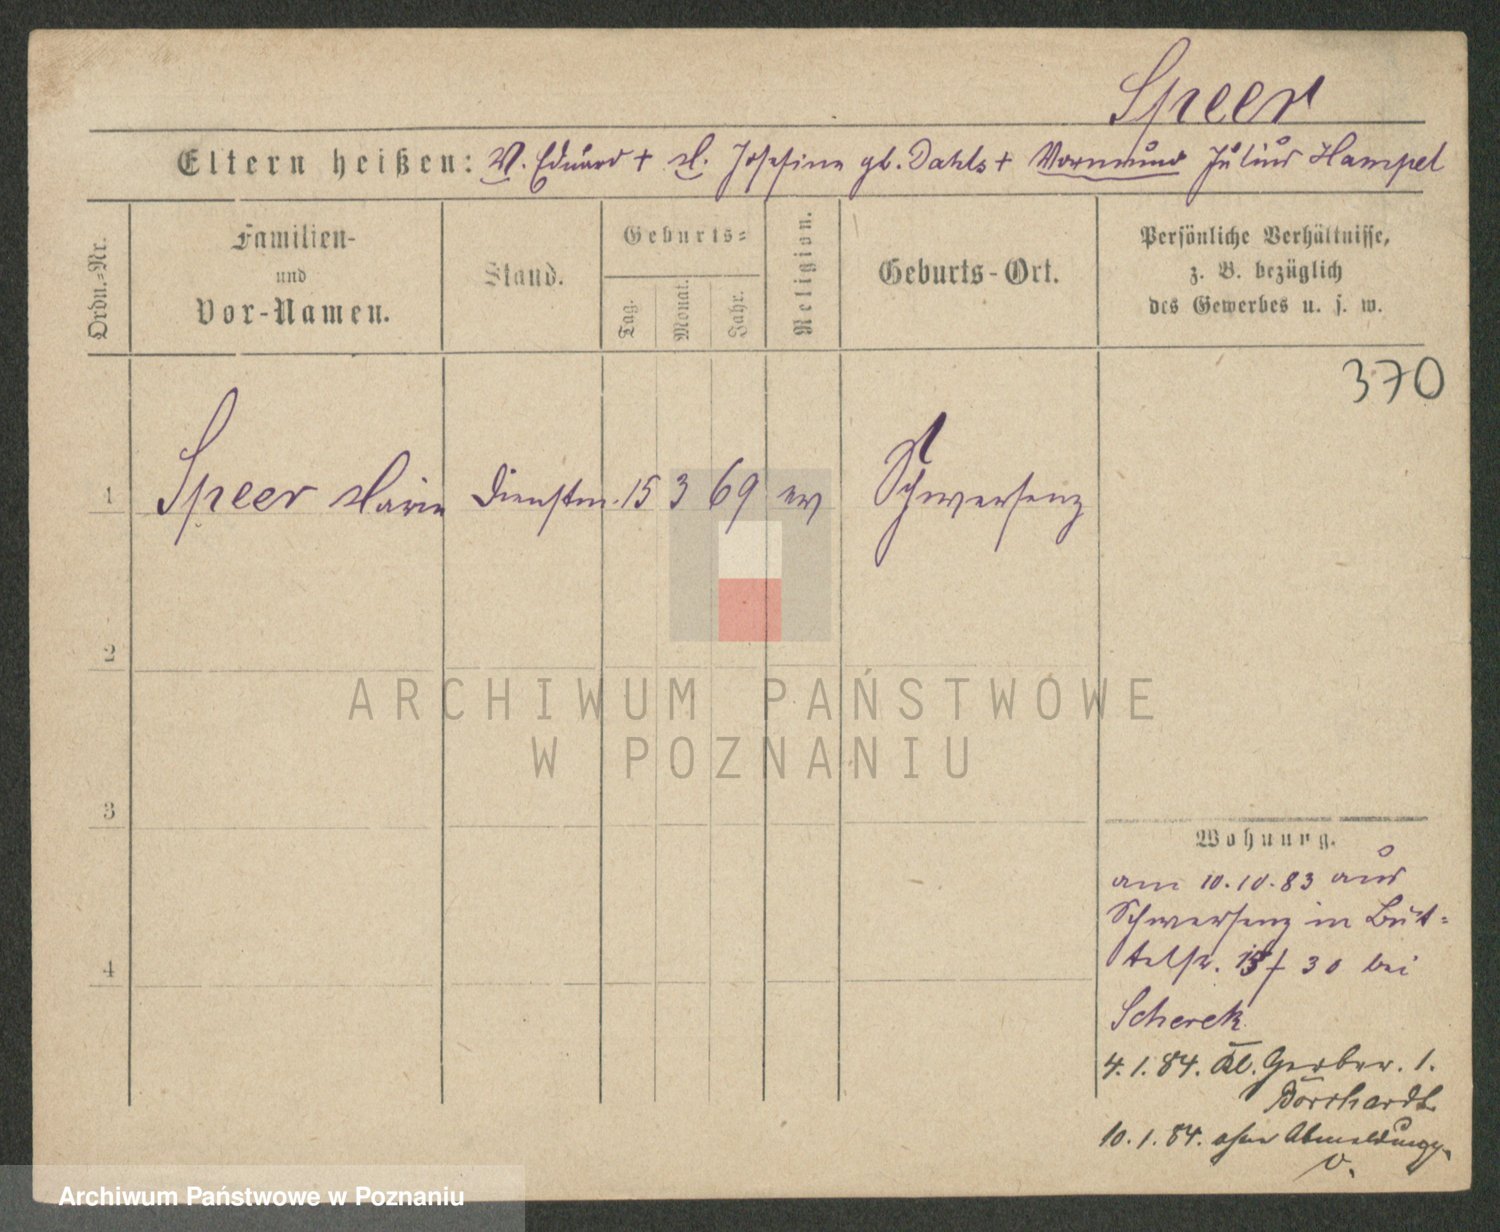 Speer
Eltern heißen: V. Eduard + M. Josefine gb. Dahls + Vormund Julius Hampel
Ordn.-Nr.
Familien-
und
Vor-Namen.
Stand.
Geburts-
Tag.
Monat.
Jahr.
Religion.
Geburts-Ort.
Persönliche Verhältnisse,
z. B. bezüglich
des Gewerbes u. s. w.
370
1 Speer Marie Dienstm. 15 3 69 ev Schwersenz
2
3
4
ARCHIWUM PAŃSTWOWE
W POZNANIU
Wohnung.
am 10.10.83 aus
Schwersenz in Büt-
telstr. 30 bei
Scherek
4.1.84. Kl. Gerber. 1.
Borchardt
10.1.84. ohne Abmeldung
v.
Archiwum Państwowe w Poznaniu